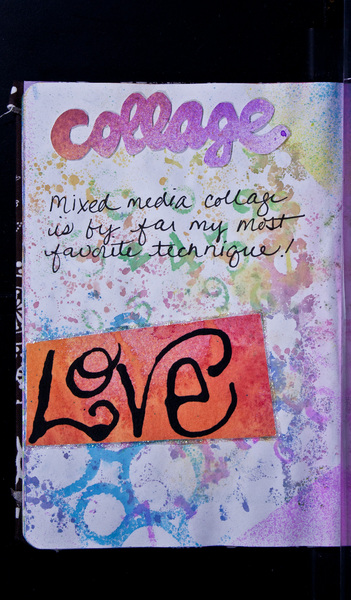 collage
Mixed media collage
is by far my most
favorite technique!
LOVE